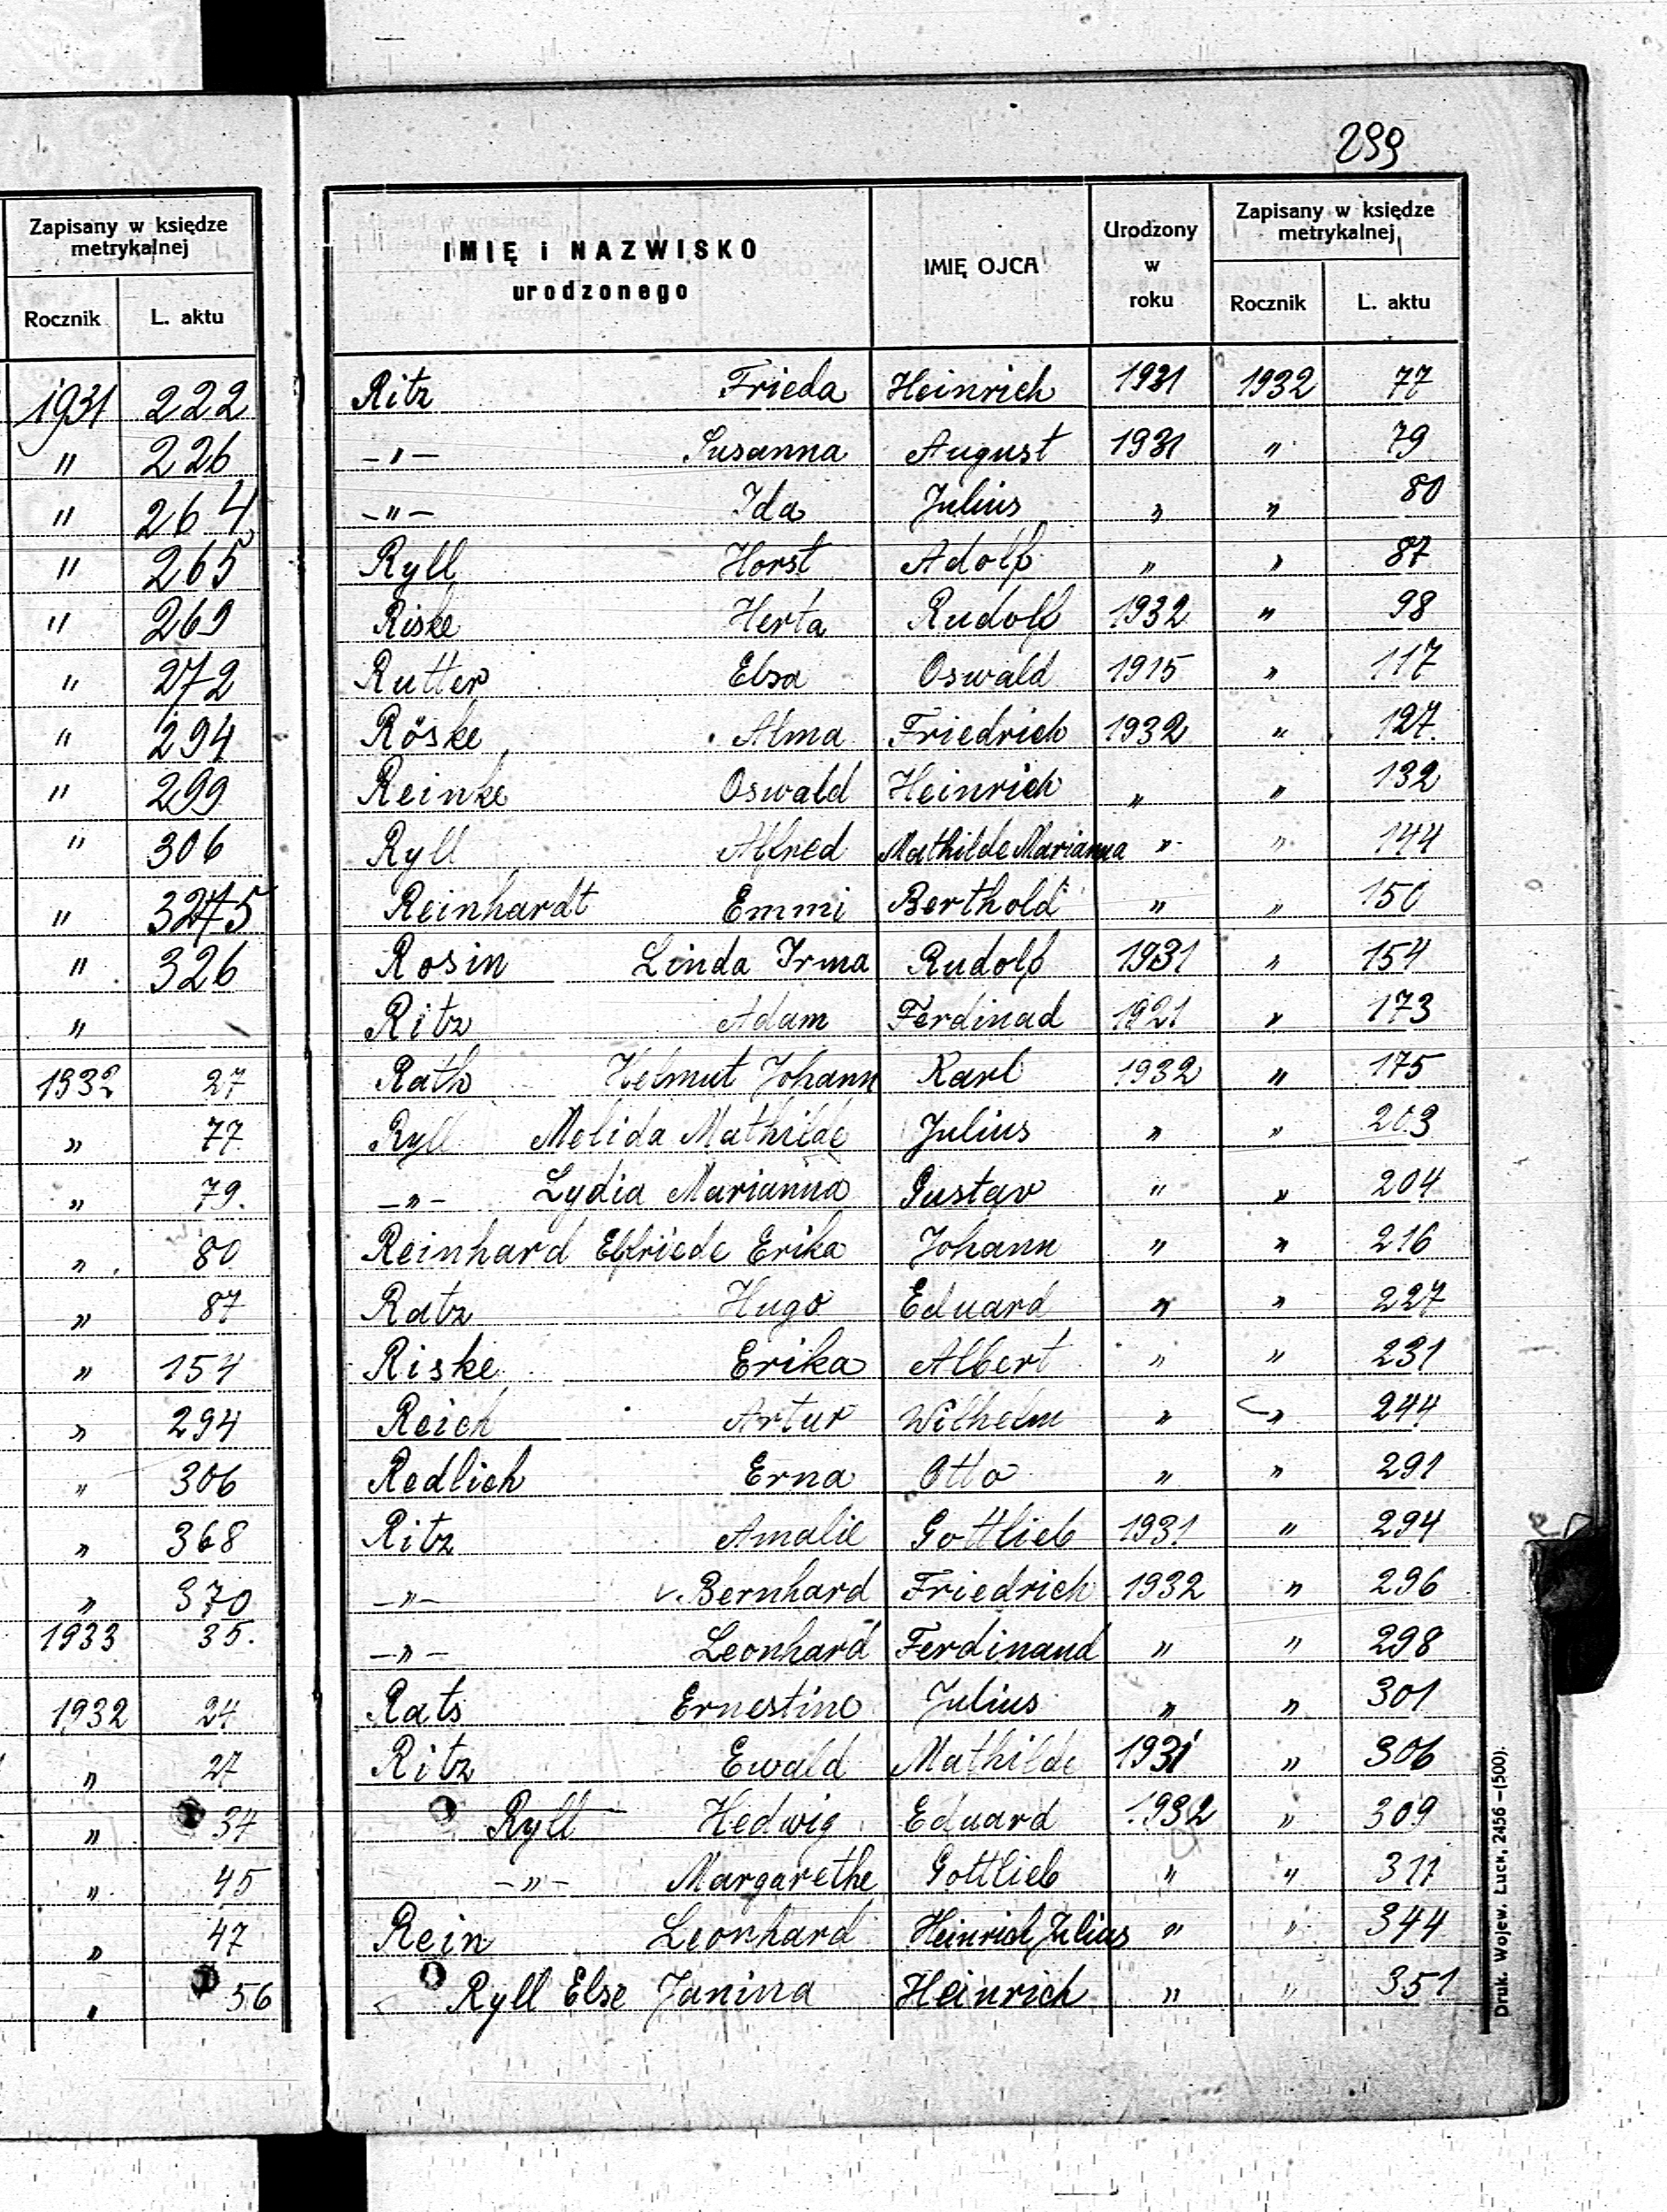 Zapisany w księdze
metrykalnej
Rocznik L. aktu
1931 222
" 226
" 264
" 265
" 269
" 272
" 294
" 299
" 306
" 325
" 326
"
1932 27
" 77
" 79.
" 80
" 87
" 154
" 294
" 306
" 368
" 370
1933 35.
1932 24
" 27
" 34
" 45
" 47
" 56
299
IMIĘ i NAZWISKO
urodzonego
IMIĘ OJCA
Urodzony
w
roku
Zapisany w księdze
metrykalnej
Rocznik L. aktu
Ritz Frieda Heinrich 1931 1932 77
-"- Susanna August 1931 " 79
-"- Ida Julius " " 80
Ryll Horst Adolf " " 87
Riske Herta Rudolf 1932 " 98
Rutter Elsa Oswald 1915 " 117
Röske Alma Friedrich 1932 " 127
Reinke Oswald Heinrich " " 132
Ryll Alfred Mathilde Marianna " " 144
Reinhardt Emmi Berthold " " 150
Rosin Linda Irma Rudolf 1931 " 154
Ritz Adam Ferdinad 1921 " 173
Rath Helmut Johann Karl 1932 " 175
Ryll Melida Mathilde Julius " " 203
-"- Lydia Marianna Gustav " " 204
Reinhard Elfriede Erika Johann " " 216
Ratz Hugo Eduard " " 227
Riske Erika Albert " " 231
Reich Artur Wilhelm " " 244
Redlich Erna Otto " " 291
Ritz Amalie Gottlieb 1931 " 294
-"- v. Bernhard Friedrich 1932 " 296
-"- Leonhard Ferdinand " " 298
Rats Ernestine Julius " " 301
Ritz Ewald Mathilde 1931 " 306
Ryll Hedwig Eduard 1932 " 309
-"- Margarethe Gottlieb " " 311
Rein Leonhard Heinrich Julius " " 344
Ryll Else Janina Heinrich " " 351
Druk. Wojew. Łuck, 2456 —(500).